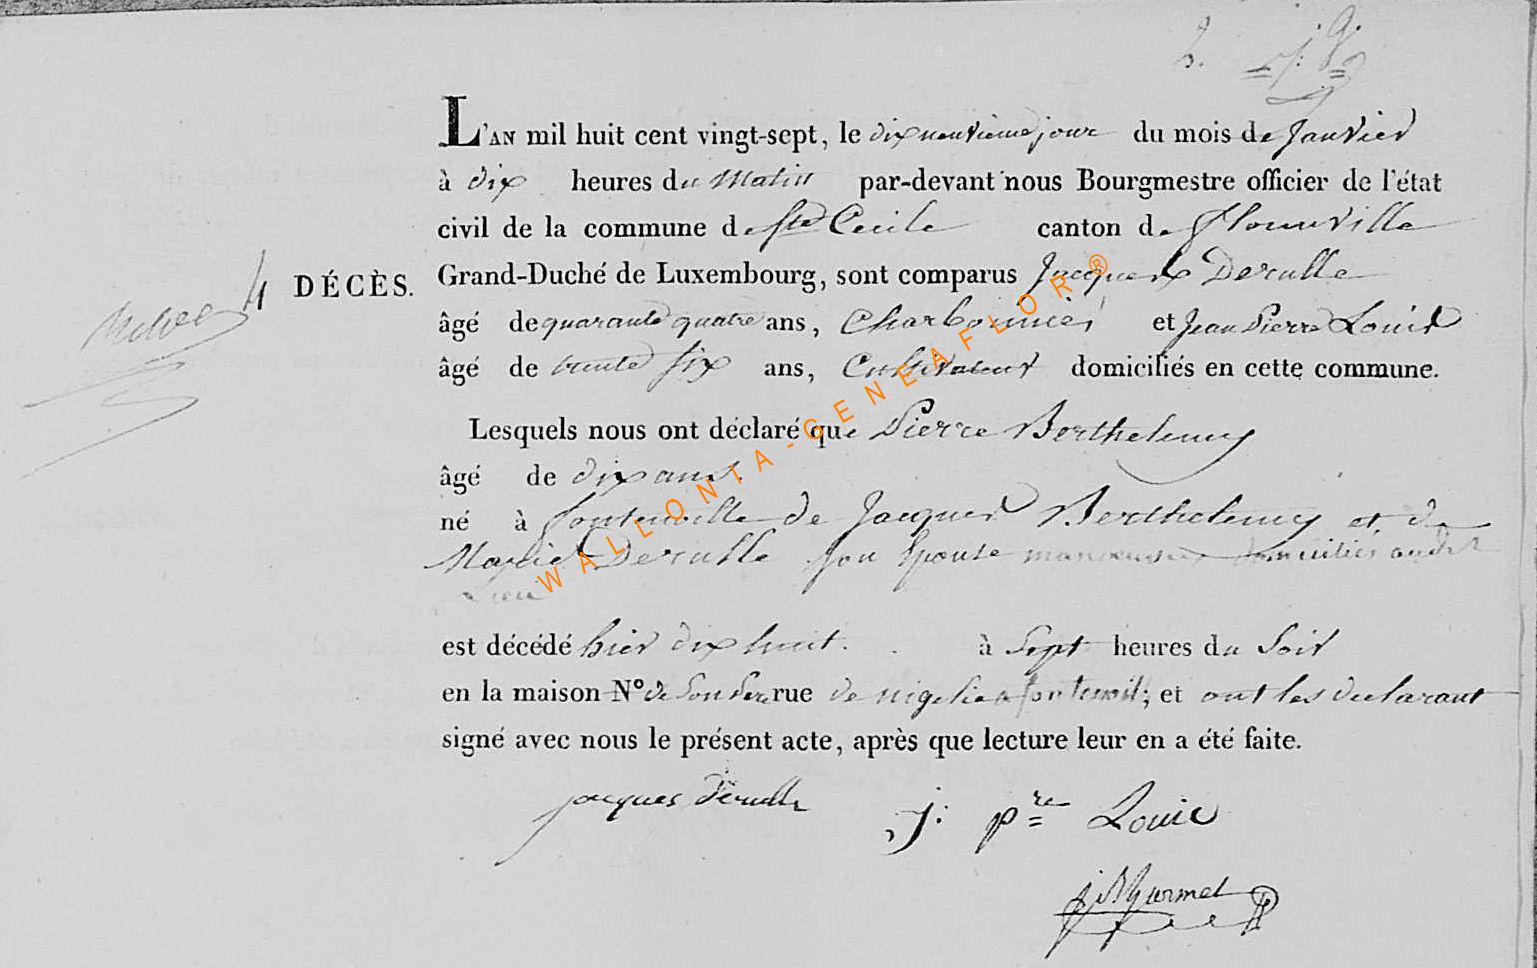 L'AN mil huit cent vingt-sept, le dix neuvieme jour du mois de Janvier
à dix heures du Matin par-devant nous Bourgmestre officier de l'état
civil de la commune de Ste Cecile canton de Florenville
4 DÉCÈS. Grand-Duché de Luxembourg, sont comparus Jacques Derulle
âgé de quarante quatre ans, Charbonnier et Jean Pierre Louis
âgé de trente six ans, Cultivateur domiciliés en cette commune.
Lesquels nous ont déclaré que Pierre Berthelemy
âgé de dix ans.
né à fontenoille de Jacques Berthelemy et de
Marie Derulle son Epouse manoeuvre domiciliés audit
Lieu
est décédé hier dix huit. à Sept heures du Soir
en la maison N° de Son Pere rue de à fontenoil; et ont les declarant
signé avec nous le présent acte, après que lecture leur en a été faite.
jacques derulle
j: pre Louis
WALLONIA-GENEAFLOR®